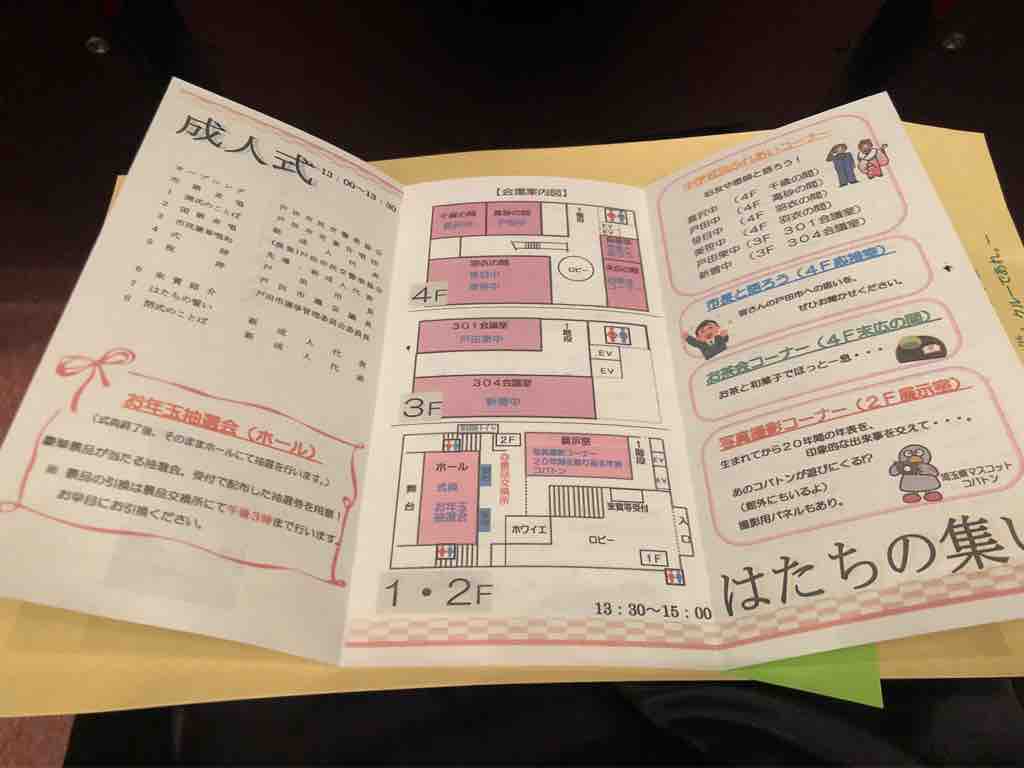 成人式
13:00~13:30
オープニング
1 開式のことば
2 国歌斉唱
3 市民憲章唱和
4 式辞
5 祝辞
6 来賓紹介
7 はたちの誓い
8 閉式のことば
新成人代表
新成人代表
お年玉抽選会（ホール）
（式典終了後、そのままホールにて抽選を行います♪）
豪華景品が当たる抽選会。受付で配布した抽選券を用意！
※ 景品の引換は景品交換所にて午後3時まで行います。
お早目にお引換ください。
【会場案内図】
千歳の間
高砂の間
階段
EV
羽衣の間
笹目中
美笹中
ロビー
末広の間
4F
301会議室
戸田東中
階段
EV
EV
304会議室
新曽中
3F
2F
展示室
写真撮影コーナー
20年間を振り返る年表
コバトン
階段
EV
EV
ホール
式典
お年玉
抽選会
舞台
景品交換所
ホワイエ
ロビー
来賓等受付
入口
1F
1・2F
13:30~15:00
中学校区ふれあいコーナー
旧友や恩師と語ろう！
喜沢中 （4F 千歳の間）
戸田中 （4F 高砂の間）
笹目中 （4F 羽衣の間）
美笹中 （4F 羽衣の間）
戸田東中（3F 301会議室）
新曽中 （3F 304会議室）
市長と語ろう（4F応接室）
皆さんの戸田市への思いを、
ぜひお聞かせください。
お茶会コーナー（4F末広の間）
お茶と和菓子でほっと一息・・・
写真撮影コーナー（2F展示室）
生まれてから20年間の年表を、
印象的な出来事を交えて・・・・。
あのコバトンが遊びにくる!?
（館外にもいるよ）
撮影用パネルもあり。
埼玉県マスコット
コバトン
はたちの集い
クルーであれ。